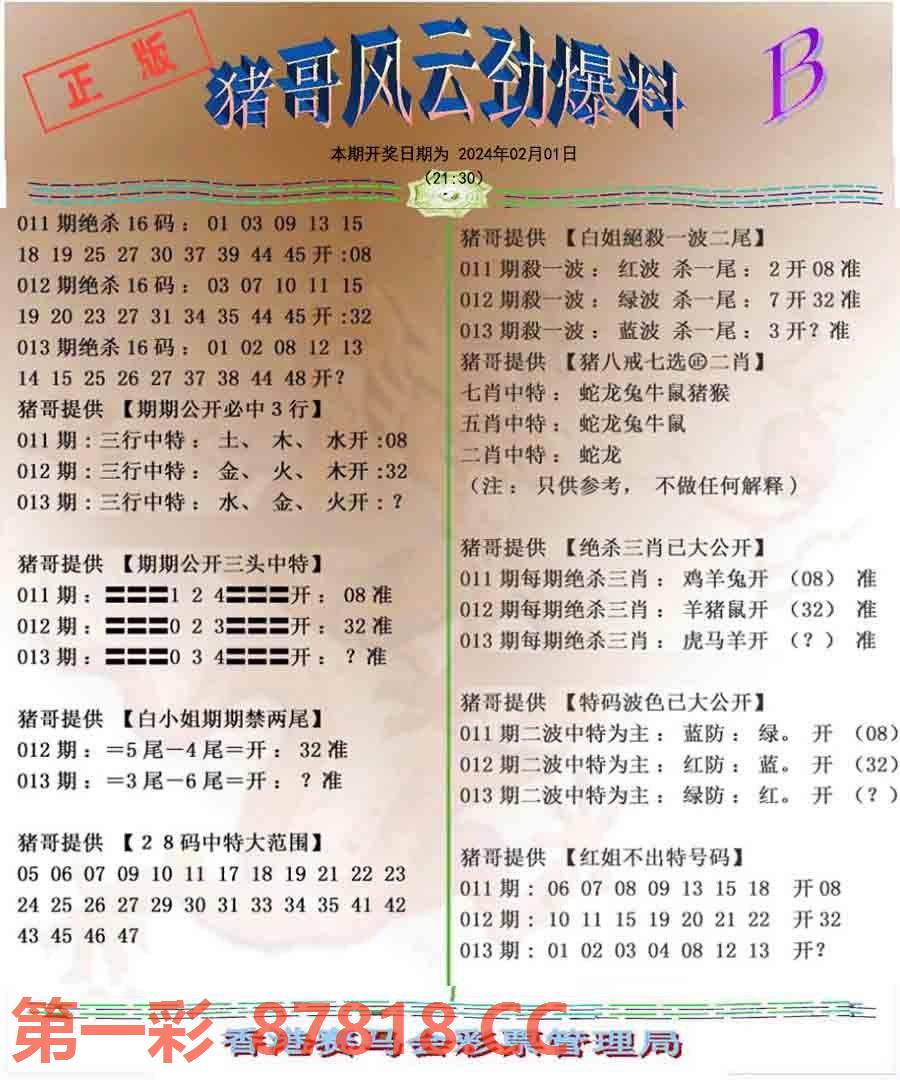 正版
猪哥风云劲爆料
B
本期开奖日期为 2024年02月01日
(21:30)
011期绝杀16码：01 03 09 13 15
18 19 25 27 30 37 39 44 45开:08
012期绝杀16码：03 07 10 11 15
19 20 23 27 31 34 35 44 45开:32
013期绝杀16码：01 02 08 12 13
14 15 25 26 27 37 38 44 48开?
猪哥提供 【期期公开必中3行】
011期:三行中特：土、木、水开:08
012期:三行中特：金、火、木开:32
013期:三行中特：水、金、火开:？
猪哥提供 【期期公开三头中特】
011期：〓〓〓1 2 4〓〓〓开：08准
012期：〓〓〓0 2 3〓〓〓开：32准
013期：〓〓〓0 3 4〓〓〓开：？准
猪哥提供 【白小姐期期禁两尾】
012期：＝5尾－4尾＝开：32准
013期：＝3尾－6尾＝开：？准
猪哥提供 【２８码中特大范围】
05 06 07 09 10 11 17 18 19 21 22 23
24 25 26 27 29 30 31 33 34 35 41 42
43 45 46 47
猪哥提供 【白姐絕殺一波二尾】
011期殺一波：红波 杀一尾：2开08准
012期殺一波：绿波 杀一尾：7开32准
013期殺一波：蓝波 杀一尾：3开？准
猪哥提供 【猪八戒七选㊣二肖】
七肖中特：蛇龙兔牛鼠猪猴
五肖中特：蛇龙兔牛鼠
二肖中特：蛇龙
（注：只供参考，不做任何解释)
猪哥提供 【绝杀三肖已大公开】
011期每期绝杀三肖：鸡羊兔开（08）准
012期每期绝杀三肖：羊猪鼠开（32）准
013期每期绝杀三肖：虎马羊开（？）准
猪哥提供 【特码波色已大公开】
011期二波中特为主：蓝防：绿。开（08)
012期二波中特为主：红防：蓝。开（32)
013期二波中特为主：绿防：红。开（？)
猪哥提供 【红姐不出特号码】
011期：06 07 08 09 13 15 18 开08
012期：10 11 15 19 20 21 22 开32
013期：01 02 03 04 08 12 13 开?
第一彩 87818.CC
香港赛马会彩票管理局